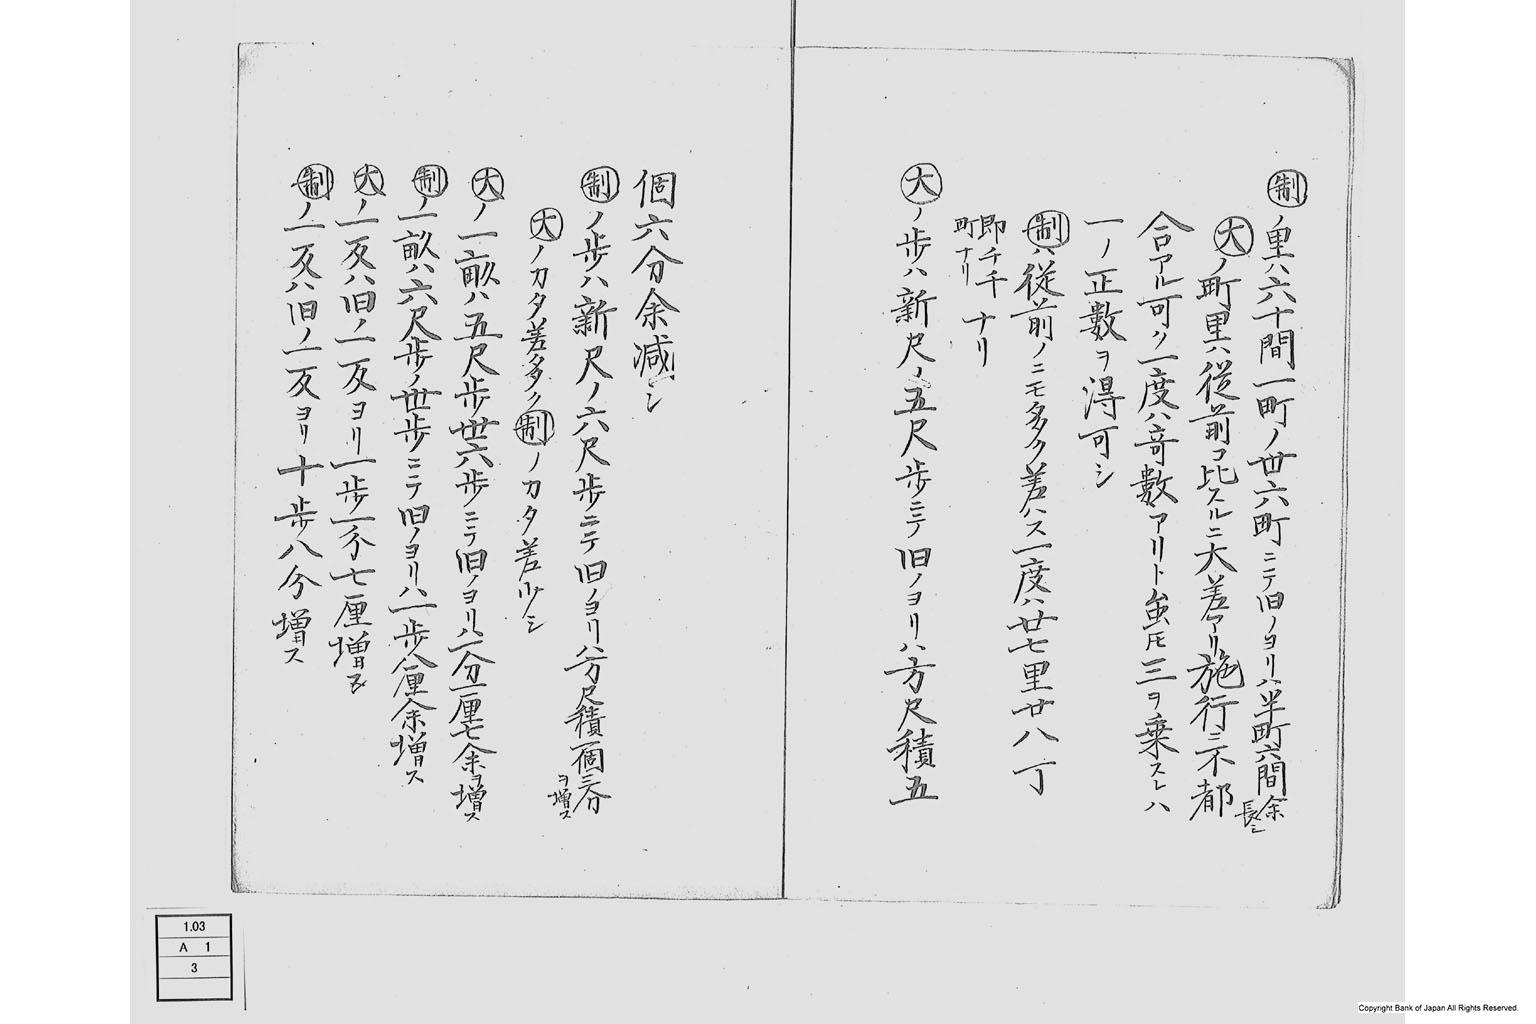 ㊑ノ里ハ六十間一町ノ丗六町ニテ旧ノヨリハ半町六間余長シ
㊅ノ町里ハ従前ニ比スルニ大差アリ施行ニ不都
合アル可ク一度ハ奇數アリト虽𪜈三ヲ乗スレハ
一ノ正數ヲ得可シ
㊑ハ従前ノニモ多ク差ハス一度ハ廿七里廿八丁
即チ千町ナリ ナリ
大ノ歩ハ新尺ノ五尺歩ニテ旧ノヨリハ方尺積五
個六分余减シ
制ノ歩ハ新尺ノ六尺歩ニテ旧ノヨリハ方尺積一個三分ヲ增ス
大ノカタ差多ク制ノカタ差少シ
大ノ一畝ハ五尺歩丗六歩ニテ旧ノヨリハ一分一厘七余ヲ增ス
制ノ一畝ハ六尺歩ノ丗歩ニテ旧ノヨリハ一歩八厘余增ス
大ノ一反ハ旧ノ一反ヨリ一歩一分七厘增ス
制ノ一反ハ旧ノ一反ヨリ十歩八分增ス
1.03
A 1
3
Copyright Bank of Japan All Rights Reserved.